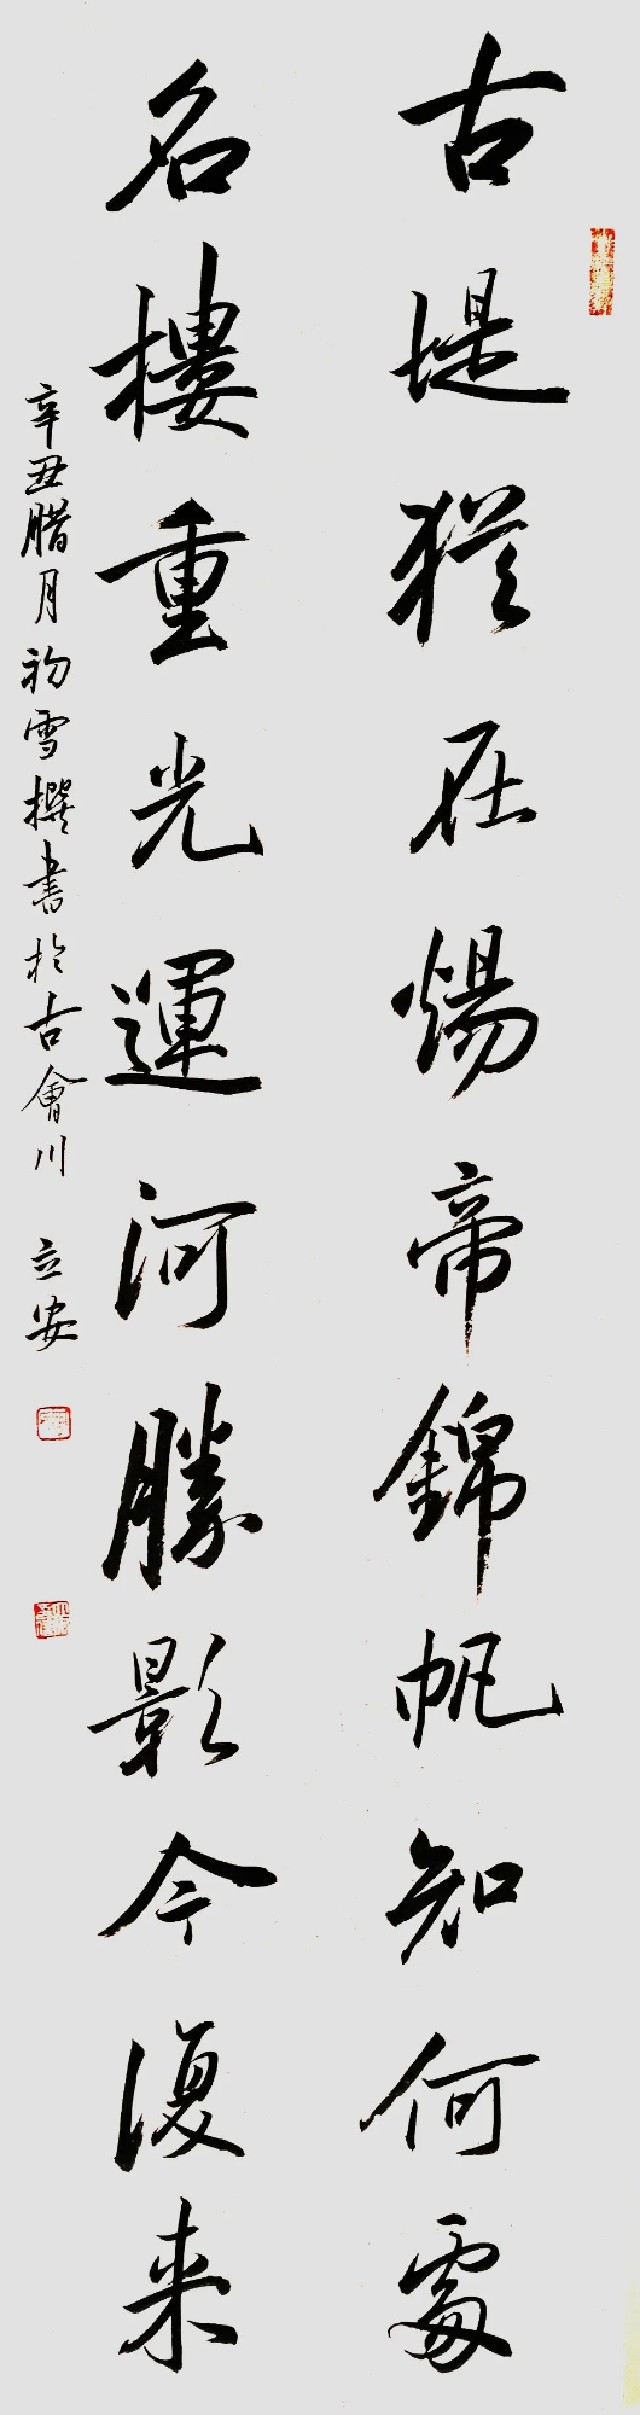 古堤猶在煬帝錦帆知何處
名樓重光運河勝影今復来
辛丑腊月初雪撰書於古會川 立安